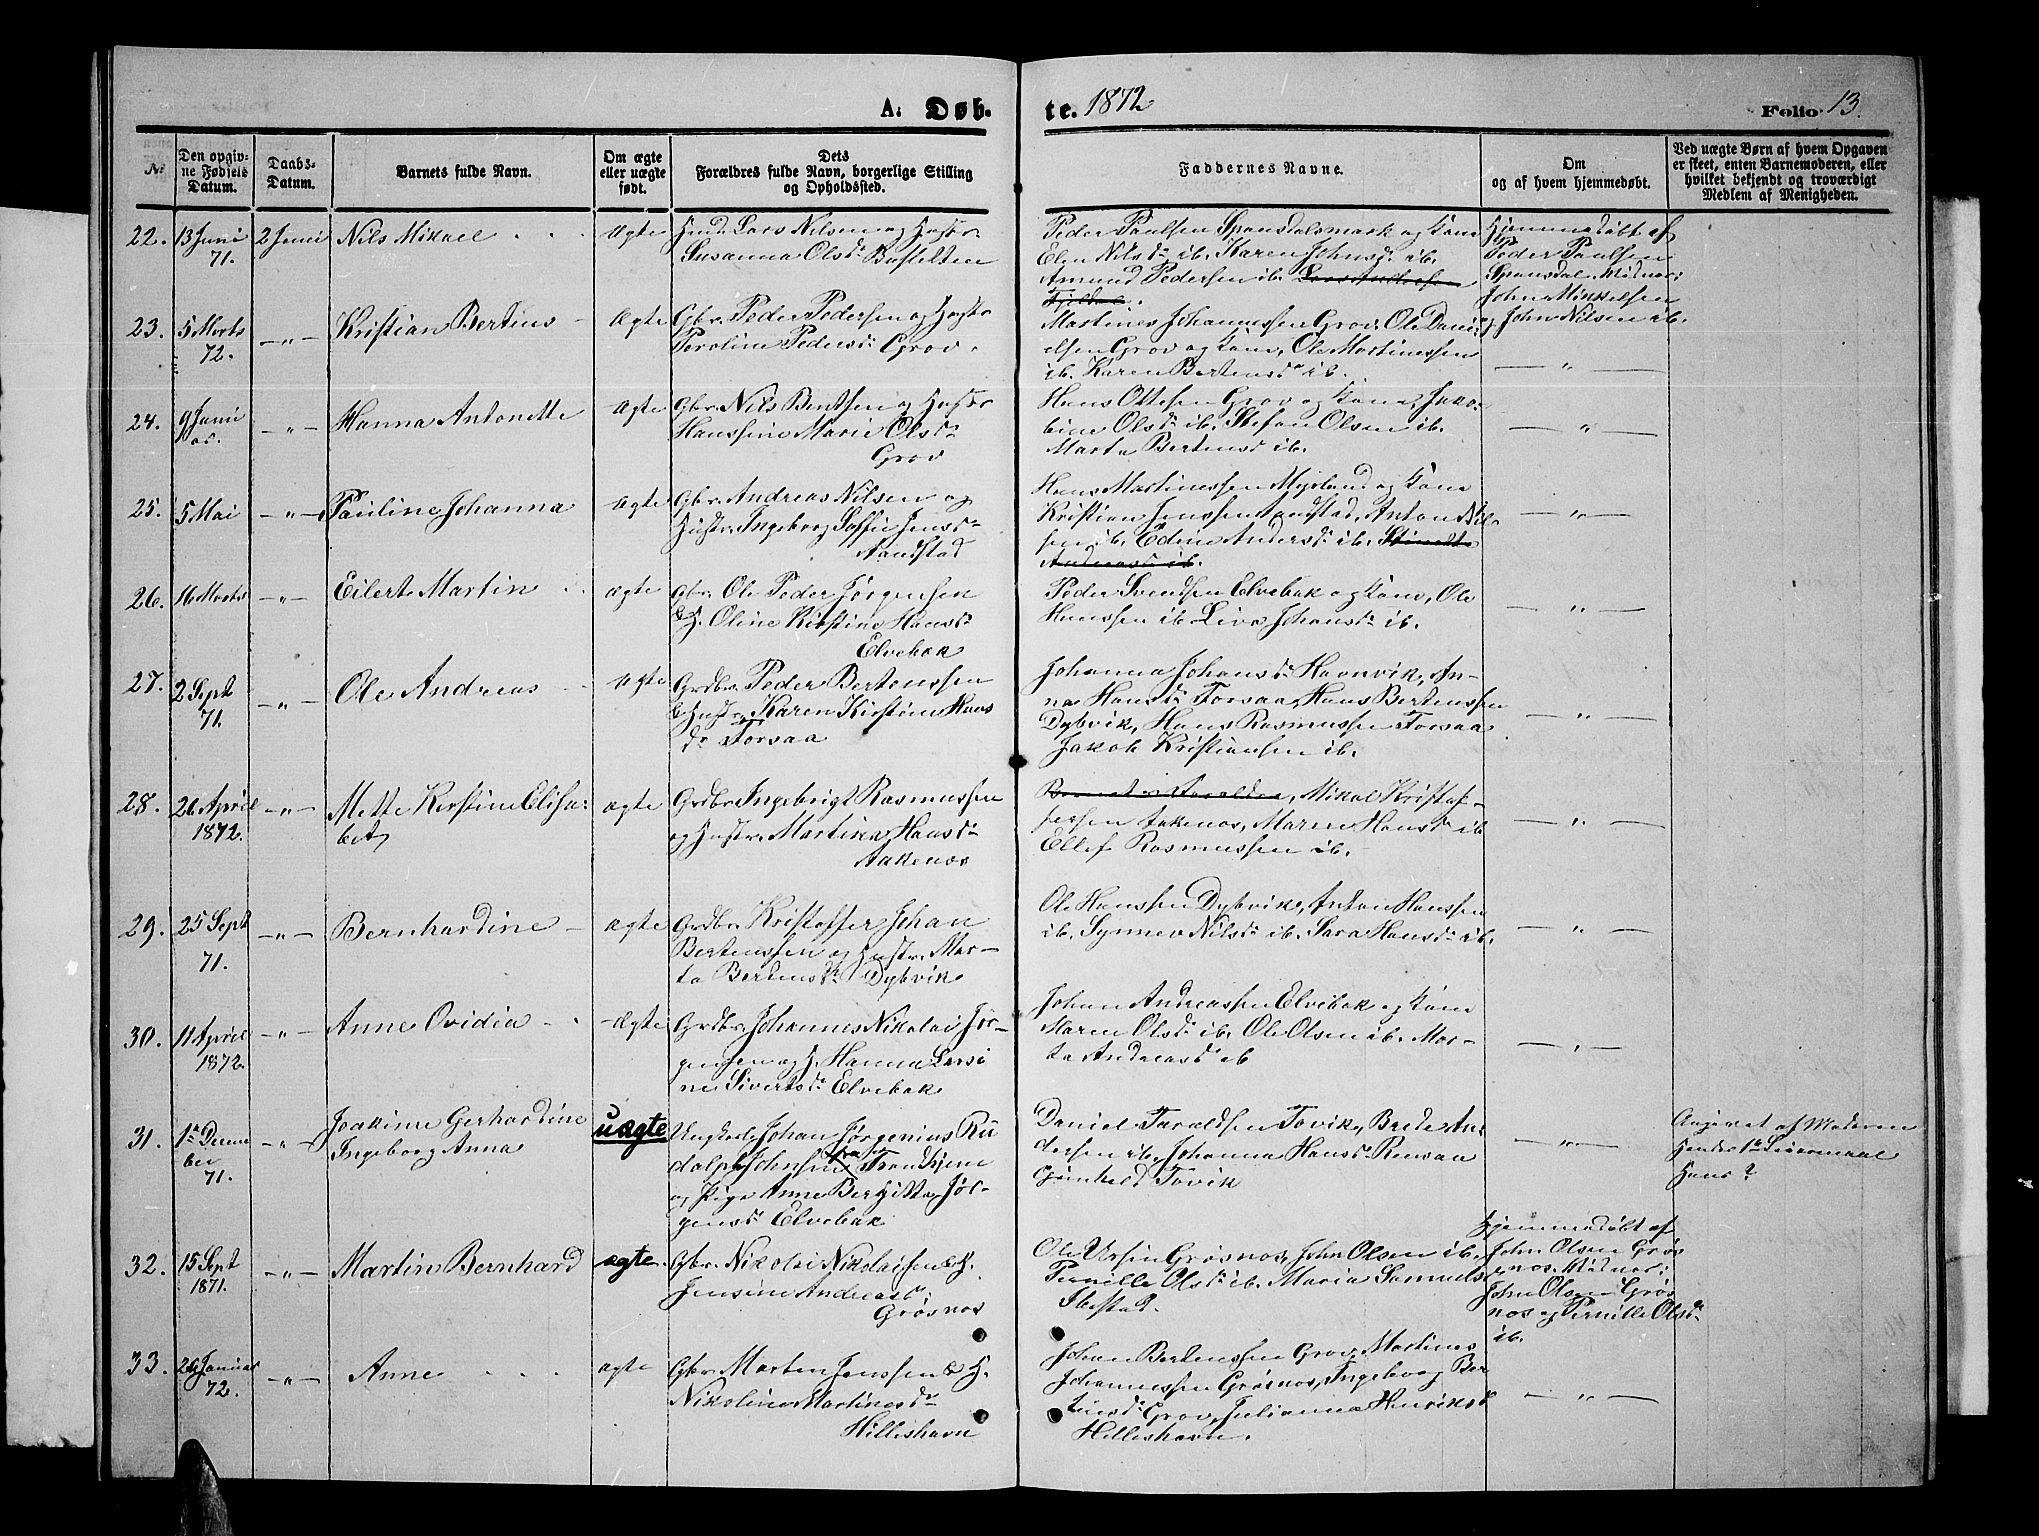 A. Døb-
te. 1872
Folio 13.
№
Den opgiv-
ne Fødsels
Datum.
Daabs-
Datum.
Barnets fulde Navn.
Om ægte
eller uægte
født.
Dets
Forældres fulde Navn, borgerlige Stilling
og Opholdssted.
Faddernes Navne.
Om
og af hvem hjemmedøbt.
Ved uægte Børn af hvem Opgaven
er skeet, enten Barnemoderen, eller
hvilket bekjendt og troværdigt
Medlem af Menigheden.
22.
13 Juni
71.
2 Juni
Nils Mikael
ægte
Lars Nilsen og Hustr
Susanna Olsdr
Peder Paulsen Spansdalsmark og Kone
Elen Nilsdr ib. Karen Johnsdr ib.
Amund Pedersen ib. Lars
Hjemmedøbt af
Peder Paulsen
Spansdal.
John Mikkelsen
og John Nilsen ib.
23.
5 Marts
72.
—"—
Kristian Bertius
Ægte
Gbr. Peder Pedersen og Hustr
Peroline Pedersdr Grov.
Martines Johannessen Grov. Ole Dani-
elsen Grov og Kone, Ole Martinessen
ib. Karen Bertensdr ib.
—"—
24.
9 Juni
—"—
Hanna Antonette
ægte
Gbr. Nils Bentsen og Hustr
Hanssine Marie Olsdr
Grov
Hans Ottesen Grov og Kone, Jako-
bine Olsdr ib. Stefan Olsen ib.
Marta Bertensdr ib.
—"—
25.
5 Mai
—"—
Pauline Johanna
ægte
Gbr. Andreas Nilsen og
Hustr. Ingeborg Soffie Jensdr
Aandstad
Hans Martinessen Myrland og Kone
Kristian Jenssen Aandstad, Anton Nil-
sen ib. Edine Andersdr ib.
Andreasdr ib.
—"—
26.
16 Marts
—"—
Eilert Martin
ægte
Gbr. Ole Peder Jørgensen
& H. Oline Kirstine Hansdr
Elvebak
Peder Svendsen Elvebak og Kone, Ole
Hanssen ib. Liva Johansdr ib.
—"—
27.
2 Sept
71.
—"—
Ole Andreas
ægte
Grdbr. Peder Bertenssen
& Hustr. Karen Kirstine Hans
dr Forsaa
Johanna Johansdr Havnvik, An-
na Hansdr Forsaa, Hans Bertenssen
Dybvik, Hans Rasmussen Forsaa
Jakob Kristiansen ib.
—"—
28.
26 April
1872.
—"—
Mette Kirstine Elisa-
bet
ægte
Grdbr. Ingebrigt Rasmussen
og Hustr. Martina Hansdr
Aakenes
Mikal Kristof-
fersen Aakenos, Maren Hansdr ib
Ellef Rasmussen ib.
—"—
29.
25 Sept
71.
—"—
Bernhardine
ægte
Grdbr. Kristoffer Johan
Bertenssen og Hustr. Mar-
ta Bertensdr Dybvik
Ole Hanssen Dybvik, Anton Hanssen
ib. Synnev Nilsdr ib. Sara Hansdr ib.
—"—
30.
11 April
1872.
—"—
Anne Ovidia
Ægte
Grdbr. Johannes Nikolai Jør-
gensen og H. Hanna Larsi
ne Sivertsdr Elvebak
Johan Andreassen Elvebak og Kone
Maren Olsdr ib. Ole Olsen ib. Mar-
ta Andreasdr ib
—"—
31.
1ste Decem
ber
71.
—"—
Joakime Gerhardine
Ingeborg Anna
uægte
Ungkarl Johan Jørgenius Ru
dolph Johnsen fra Trondhjem
og Pige Anne Bergitte Jør-
gensdr Elvebak
Daniel Taraldsen Tovik, Brede An-
dersen ib. Johanna Hansdr Rensaa
Gunhild Tovik
—"—
Angivet af Moderen
Hendes 1ste Leiermaal
Hans ?
32.
15 Sept
1871.
—"—
Martin Bernhard
ægte.
Gbr. Nikolai Nikolaisen & H.
Jensine Andreasdr
Grøsnos
Ole Ursin Grøsnos, John Olsen ib.
Pernille Olsdr ib. Maria Samuelsdr
Ibestad.
Hjemmedøbt af
John Olsen Grøs
nos.
John Olsen Grøs
nos og Pernille Olsdr
ib.
33.
29 Januar
72.
—"—
Anne
ægte
Gbr. Morten Jenssen & H.
Nikoline Martinesdr
Hilleshavn
Johan Bertenssen Grov, Martines
Johannessen Grøsnos, Ingeborg Ber
tensdr Grov, Julianna Henriksdr
Hilleshavn.
—"—